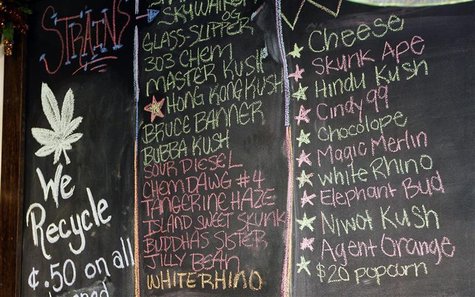 STRAINS
We
Recycle
¢.50 on all
SKYWALKER
OG
GLASS SLIPPER
303 CHEM
MASTER KUSH
HONG KONG KUSH
BRUCE BANNER
BUBBA KUSH
SOUR DIESEL
CHEM DAWG #4
TANGERINE HAZE
ISLAND SWEET SKUNK
BUDDHAS SISTER
JILLY BEAN
WHITE RHINO
Cheese
Skunk Ape
Hindu Kush
Cindy 99
Chocolope
Magic Merlin
white Rhino
Elephant Bud
Niwot Kush
Agent Orange
$20 popcorn